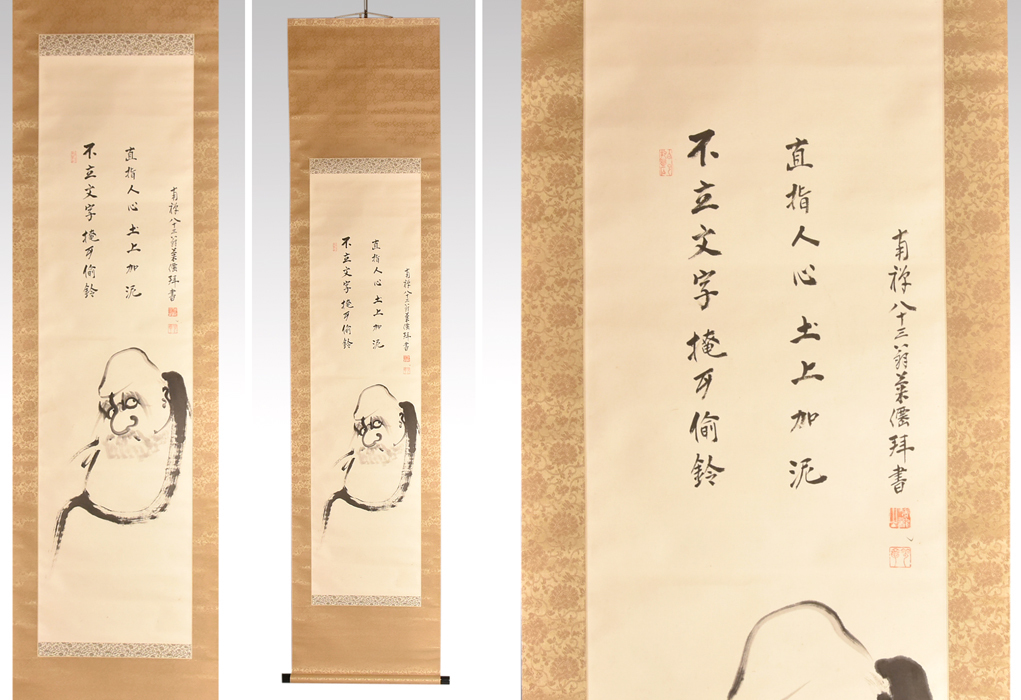 不立文字掩耳偷鈴
直指人心土上加泥
南禅八十三翁拜書
不立文字掩耳偷鈴
直指人心土上加泥
南禅八十三翁拜書
不立文字掩耳偷鈴
直指人心土上加泥
南禅八十三翁拜書